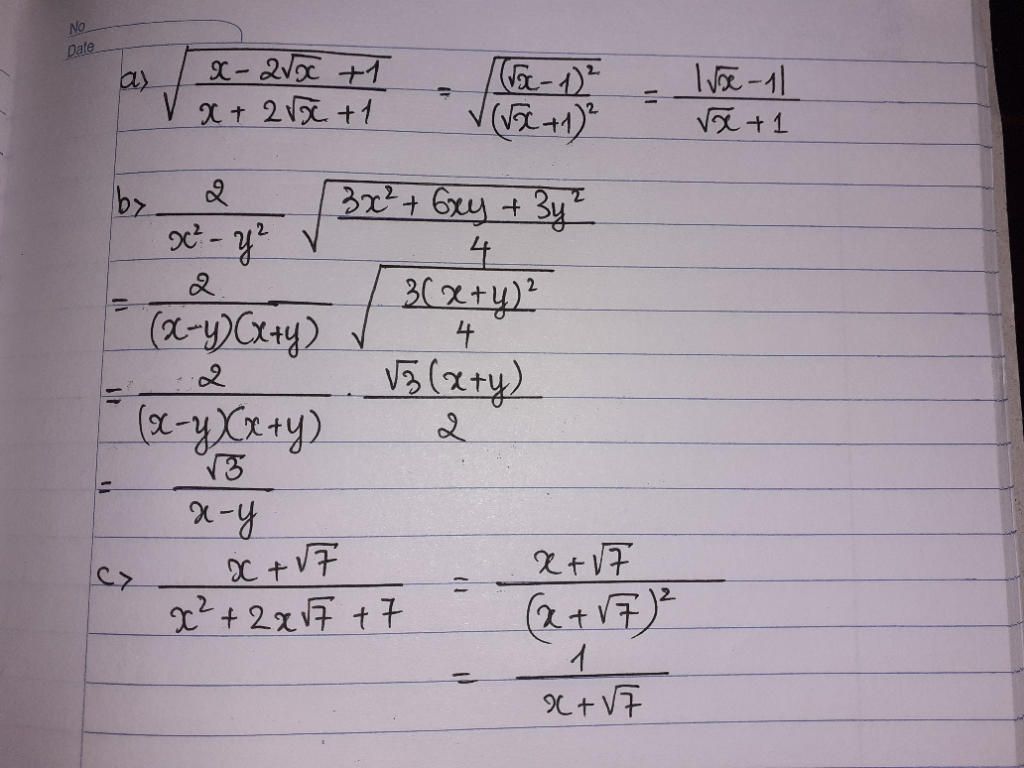 No
Date
a> √((x - 2√x + 1)/(x + 2√x + 1)) = √((√x - 1)²/(√x + 1)²) = |√x - 1|/(√x + 1)
b> 2/(x² - y²) √((3x² + 6xy + 3y²)/4)
= 2/((x-y)(x+y)) √(3(x+y)²/4)
= 2/((x-y)(x+y)) . √3(x+y)/2
= √3/(x-y)
c> (x + √7)/(x² + 2x√7 + 7) = (x + √7)/(x + √7)²
= 1/(x + √7)